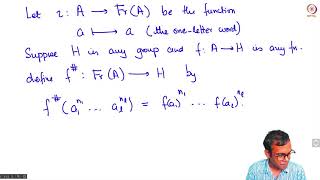 Let ι : A → Fr(A) be the function
a ↦ a (the one-letter word)
Suppose H is any group and f: A → H is any fn.
define f^# : Fr(A) → H by
f^#(a_1^{n_1} ... a_l^{n_l}) = f(a_1)^{n_1} ... f(a_l)^{n_l}.